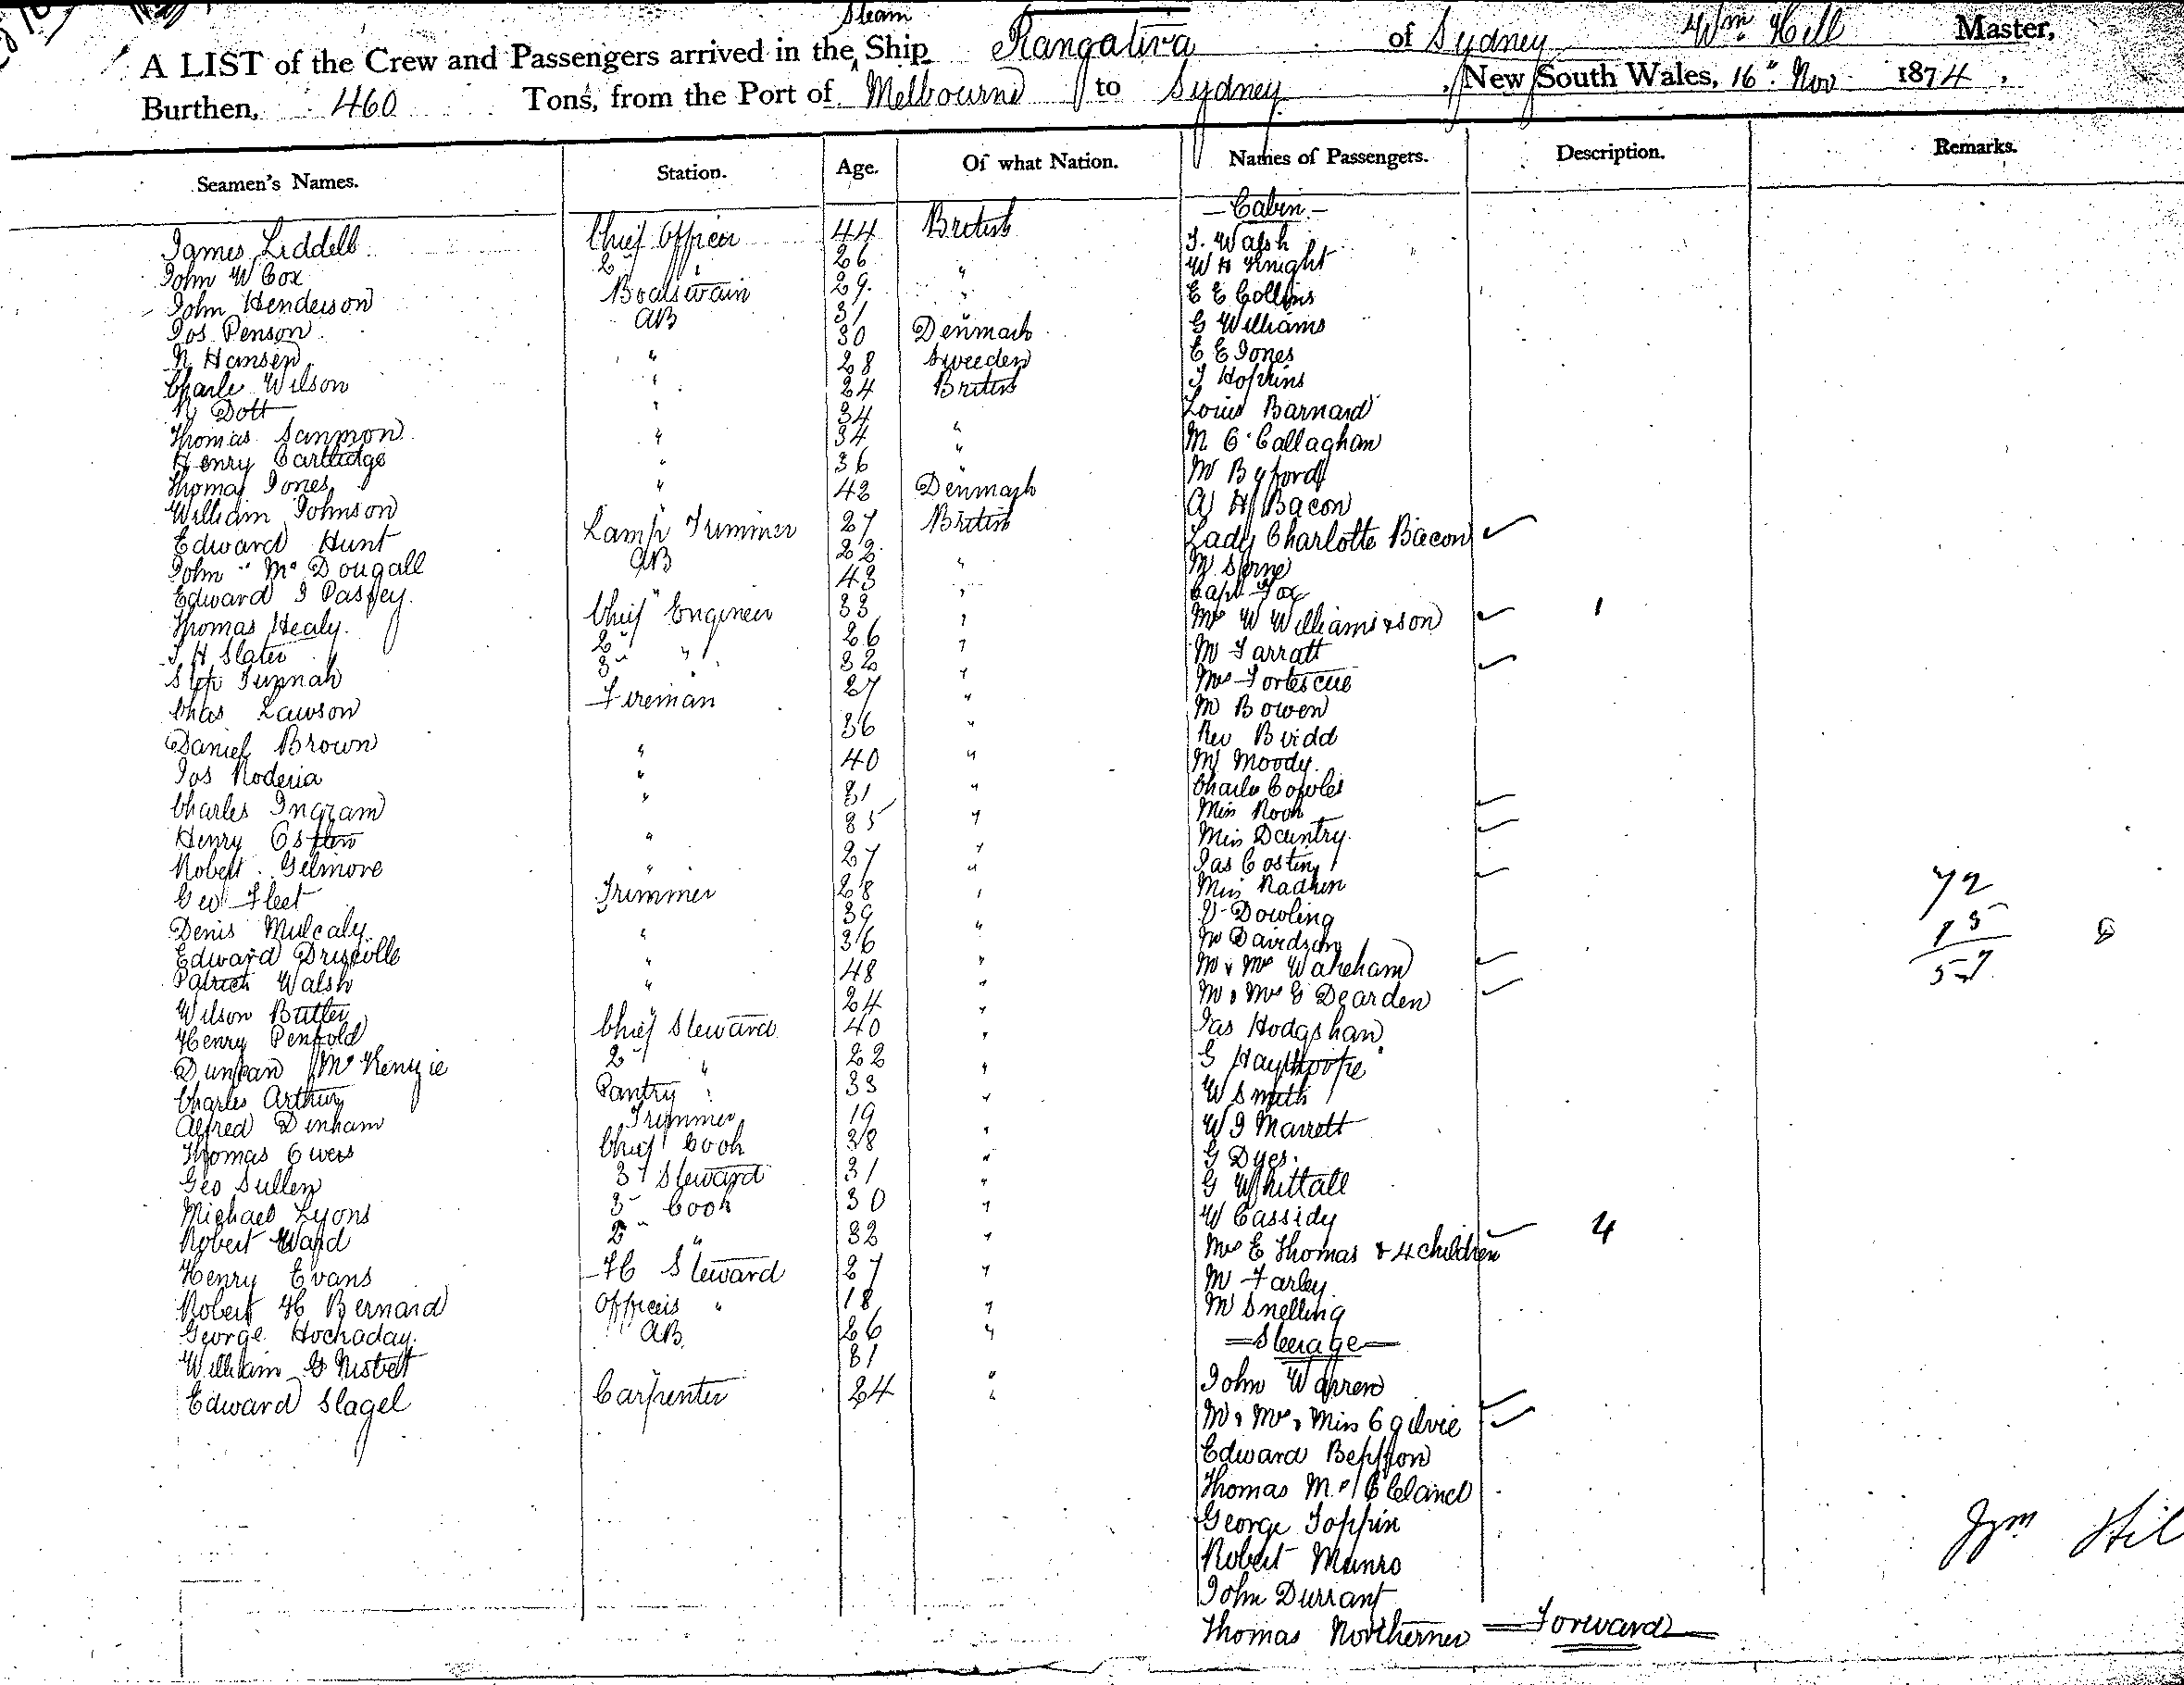 A LIST of the Crew and Passengers arrived in the Steam Ship Rangatira of Sydney Wm Hill Master,
Burthen, 460 Tons, from the Port of Melbourne to Sydney, New South Wales, 16" Nov 1874.
Seamen's Names. Station. Age. Of what Nation. Names of Passengers. Description. Remarks.
— Cabin —
James Liddell Chief Officer 44 British J. Walsh
John W Cox 2" " 26 " W H Knight
John Henderson Boatswain 29 " E E Collins
Jos Penson AB 31 " G Williams
N Hansen " 30 Denmark E E Jones
Charle Wilson " 28 Sweeden J Hopkins
R Dott " 24 British Louis Barnard
Thomas Sanmon " 34 " M O'Callaghan
Henry Cartlidge " 34 " Mr Byford
Thomas Jones " 36 " A H Bacon
William Johnson " 42 Denmark Lady Charlotte Bacon
Edward Hunt Lamp Trimmer 27 British
John McDougall AB 22 " Capt Fox
Edward J Paspey " 43 " Mrs W Williams & son 1
Thomas Healy Chief Engineer 33 " Mr Jarratt
J H Slater 2" " 26 " Mrs Fortescue
3" " 32 " Mr Bowen
Chas Lawson Fireman 27 " Rev Bridd
Daniel Brown " 36 " Mr Moody
Jos Roderia " 40 " Charles Cowles
Charles Ingram " 31 " Miss Rook
Henry " 35 " Miss Dauntry
Robert Gilmore " 27 " Jas Costin
Geo Fleet Trimmer 28 " Miss
Denis Mulcaly " 39 " Dowling
Edward Driscille " 36 " Mr Davidson
Patrick Walsh " 48 " Mr & Mrs Wakeham
Wilson Butler " 24 " Mr & Mrs G Dearden
Henry Penfold Chief Steward 40 " Jas Hodgshan
Duncan McKenzie 2" " 22 " G Haythorpe
Charles Arthur Pantry " 33 " W Smith
Alfred Denham Trimmer 19 " W J Marrett
Thomas Owens Chief Cook 38 " G Dyes
Geo Sullen 3" Steward 31 " G Whittall
Michael Lyons 3" Cook 30 " W Cassidy
Robert Ward 2" " 32 " Mrs E Thomas & 4 children 4
Henry Evans FC Steward 27 " Mr Farley
Robert H Bernard Officers " 18 " Mr Snelling
George Hockaday AB 26 " — Steerage —
William G Nisbett 31 " John Warren
Edward Slagel Carpenter 24 " Mr, Mrs, Miss Ogilvie
Edward
Thomas McCleland
George Toppin
Robert Munro
John Durrant
Thomas Northerner — Forward —
72
15
57
Wm Hil